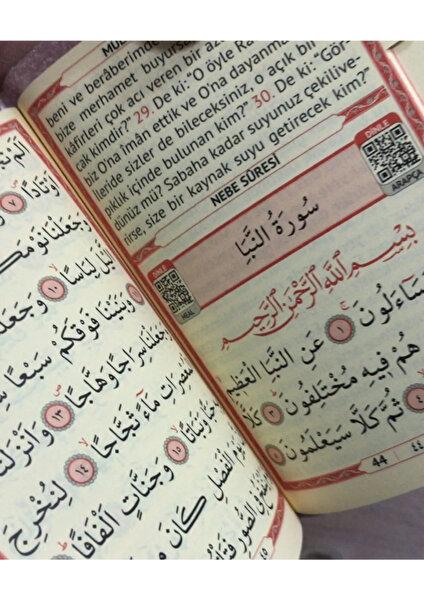 MÜL
beni ve berâberimde
bize merhamet buyursa
kâfirleri çok acı veren bir aza
cak kimdir? 29. De ki: "O öyle Ra
biz O'na îmân ettik ve O'na dayanma
ileride sizler de bileceksiniz, o açık bir
pıklık içinde bulunan kim?" 30. De ki: "Gör-
dünüz mü? Sabaha kadar suyunuz çekilive-
rirse, size bir kaynak suyu getirecek kim?"
NEBE SÛRESİ
DİNLE
ARAPÇA
سُورَةُ النَّبَأِ
DİNLE
MEAL
بِسْمِ اللّٰهِ الرَّحْمٰنِ الرَّحِيمِ
سَاءَلُونَ ١ عَنِ النَّبَأِ الْعَظِيمِ
هُمْ فِيهِ مُخْتَلِفُونَ ٣ كَلَّا
٤ ثُمَّ كَلَّا سَيَعْلَمُونَ ٥
44 ٤٤
اَلَمْ نَجْ
اَوْتَادًا ٧
وَجَعَلْنَا نَوْمَكُ
الَّيْلَ لِبَاسًا ١٠ وَجَعَلْنَا
وَبَنَيْنَا فَوْقَكُمْ سَبْعًا
وَجَعَلْنَا سِرَاجًا وَهَّاجًا ١٣ وَاَنْزَلْنَا
مَاءً ثَجَّاجًا ١٤ لِنُخْرِجَ
وَنَبَاتًا ١٥ وَجَنَّاتٍ اَلْفَافًا
الْفَصْلِ كَانَ
فِي الصُّورِ